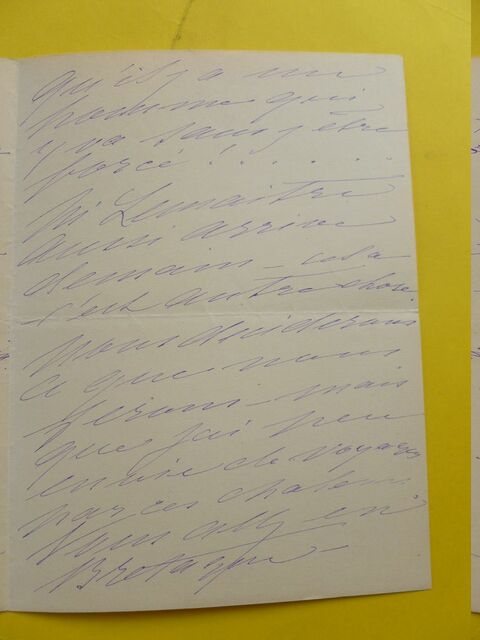 qu'il y a un
homme qui
y va sans y être
forcé !.....
Mr Lemaitre
aussi arrive
demain - cela
c'est autre chose.
Nous déciderons
ce que nous
ferons - mais
que j'ai peu
envie de voyages
par ces chaleurs
Vous allez en
Bretagne -